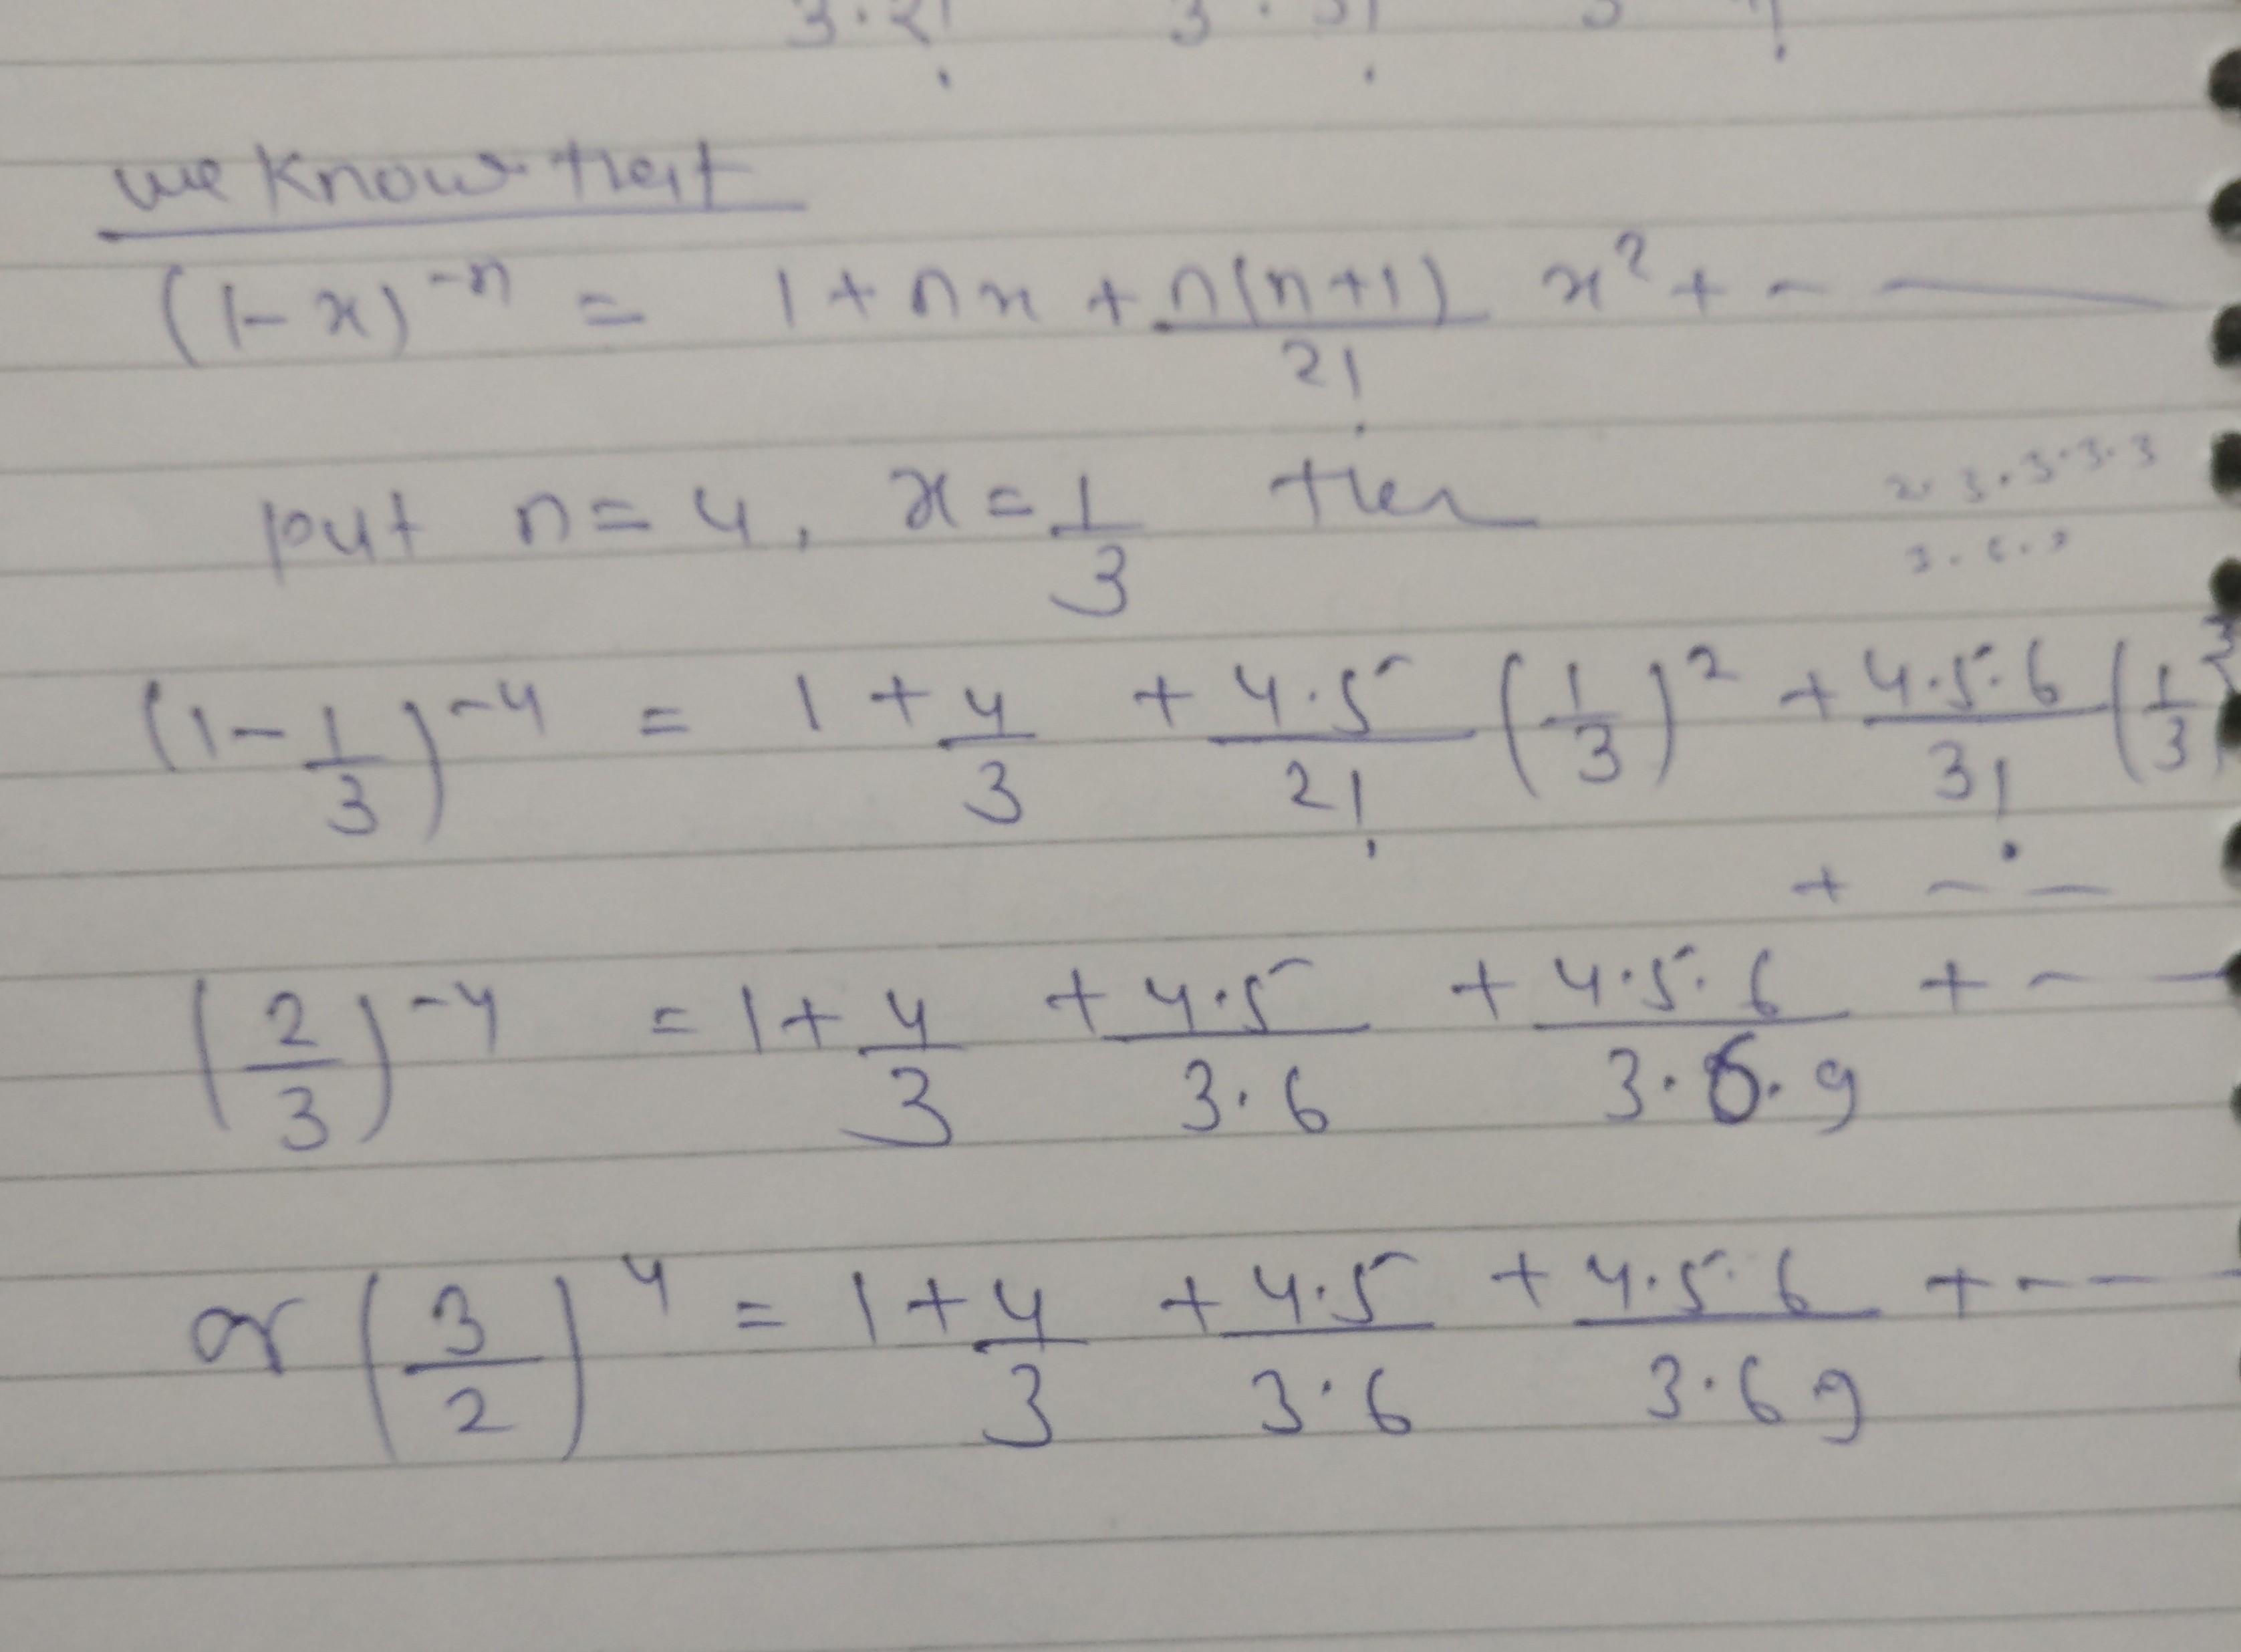 3·2!
we know that
(1-x)^-n = 1 + nx + n(n+1)/2! x² + - —
put n = 4, x = 1/3 then
(1 - 1/3)^-4 = 1 + 4/3 + 4·5/2! (1/3)² + 4·5·6/3! (1/3)³
+ - - —
(2/3)^-4 = 1 + 4/3 + 4·5/3·6 + 4·5·6/3·6·9 + - —
or (3/2)^4 = 1 + 4/3 + 4·5/3·6 + 4·5·6/3·6 9 + - - —